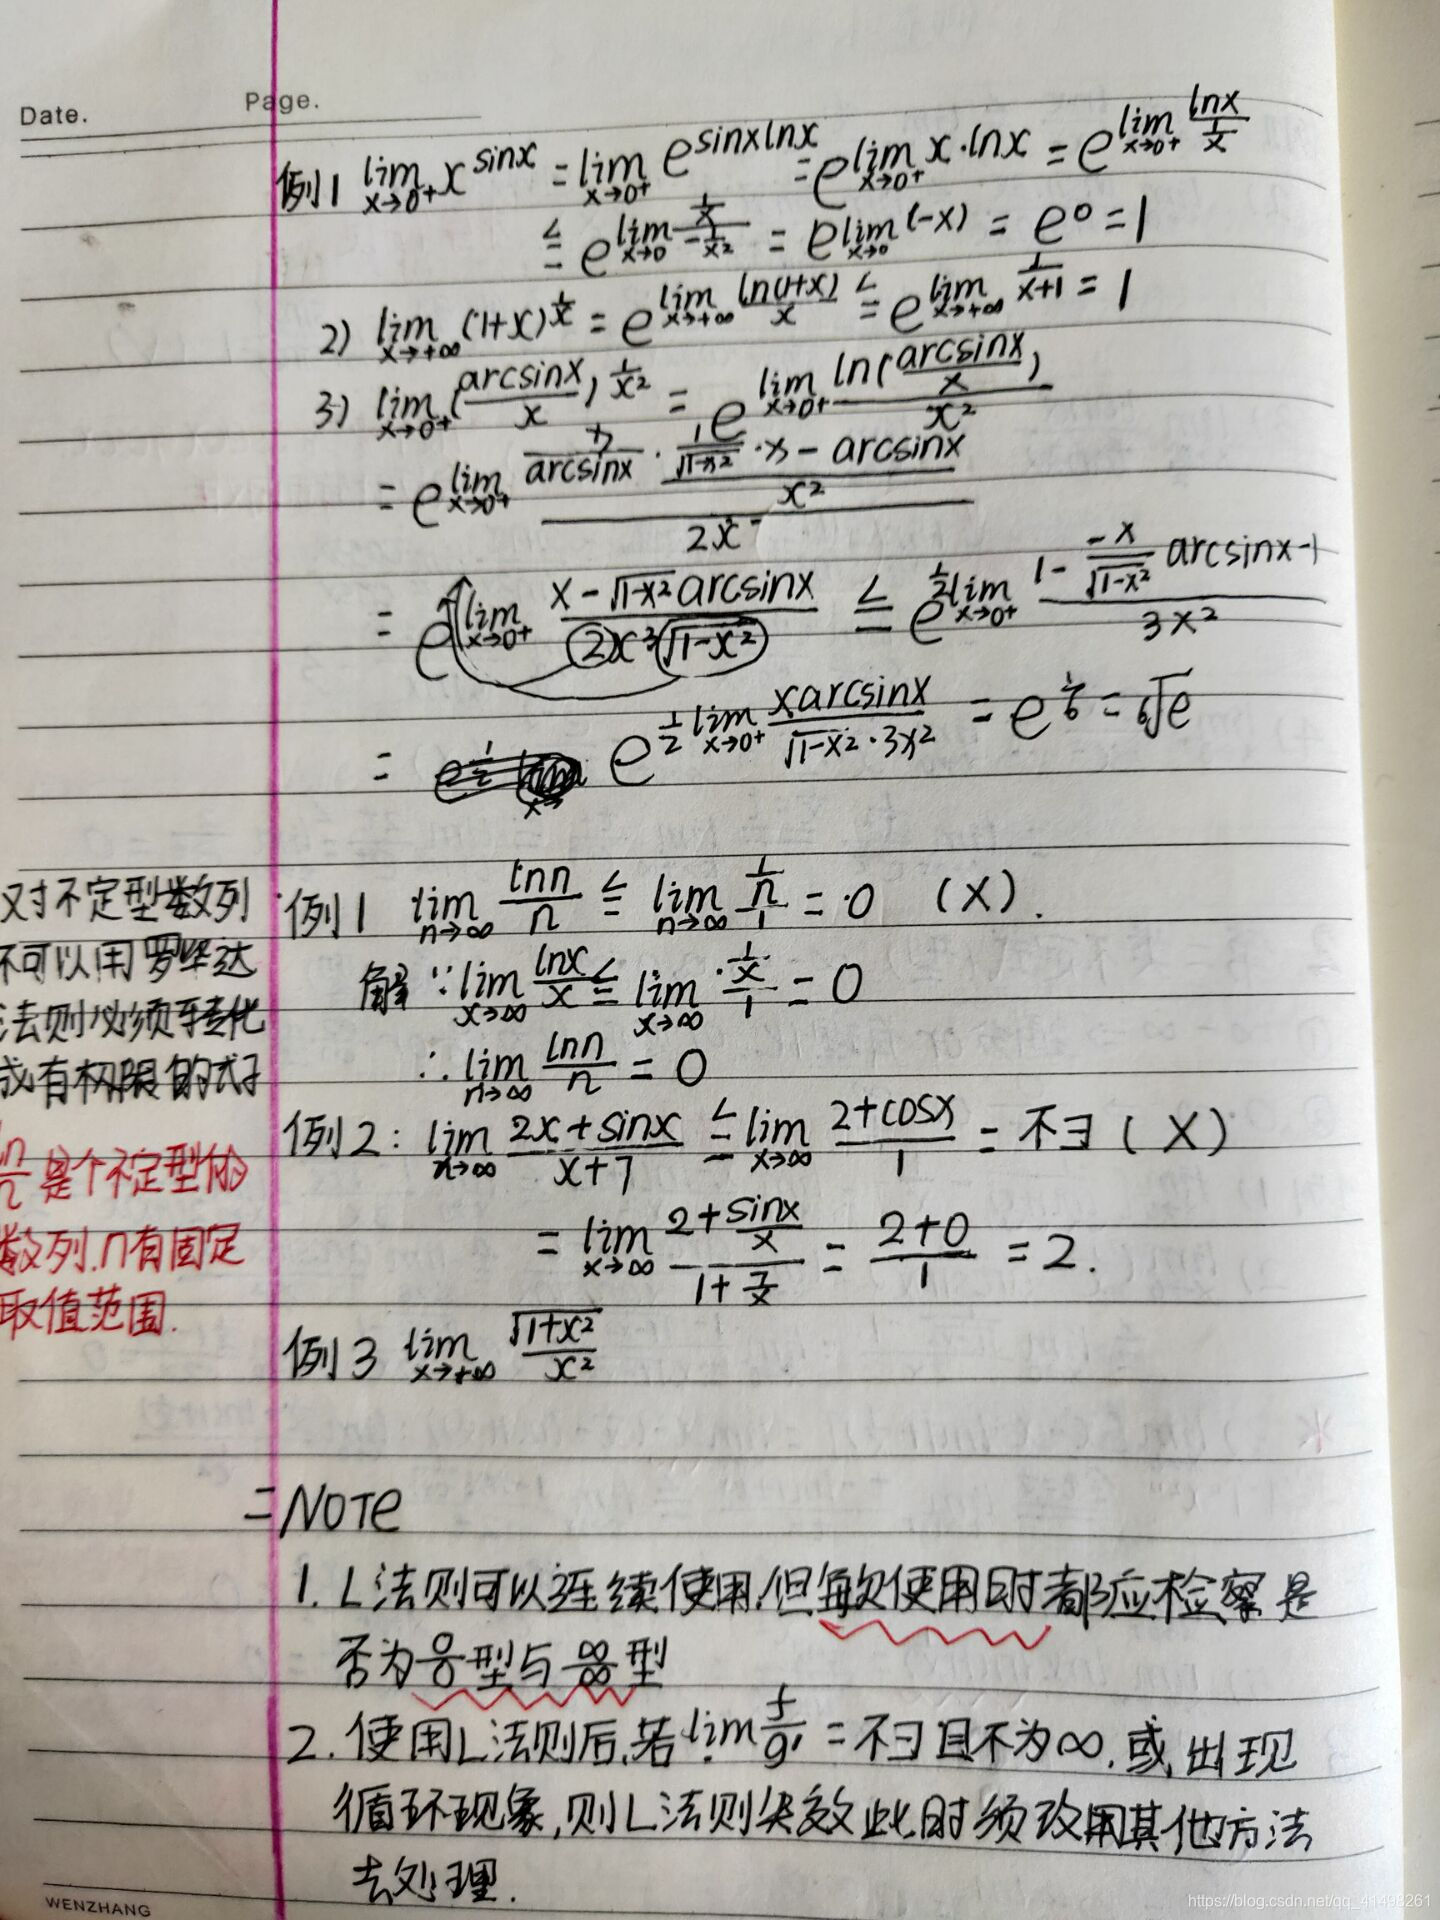 Date. Page.
例1 lim x→0⁺ x^sinx = lim x→0⁺ e^sinxlnx = e^lim x→0⁺ x·lnx = e^lim x→0⁺ lnx/(1/x)
L= e^lim x→0 (1/x)/(-1/x²) = e^lim x→0 (-x) = e⁰ = 1
2) lim x→+∞ (1+x)^(1/x) = e^lim x→+∞ ln(1+x)/x L= e^lim x→+∞ 1/(x+1) = 1
3) lim x→0⁺ (arcsinx/x)^(1/x²) = e^lim x→0⁺ ln(arcsinx/x)/x²
= e^lim x→0⁺ (x/arcsinx · (1/√(1-x²) ·x - arcsinx)/x²)/2x
= e^lim x→0⁺ (x-√(1-x²)arcsinx)/(2x³√(1-x²)) L= e^(1/2)lim x→0⁺ (1 - (-x)/√(1-x²) arcsinx-1)/3x²
= e^(1/2)lim x→0⁺ xarcsinx/(√(1-x²)·3x²) = e^(1/6) = ⁶√e
对不定型数列
不可以用罗毕达
法则必须转化
成有极限的式子
lnn/n 是个不定型的
数列.n有固定
取值范围.
例1 lim n→∞ lnn/n L= lim n→∞ (1/n)/1 = 0 (X).
解 ∵ lim x→∞ lnx/x L= lim x→∞ (1/x)/1 = 0
∴ lim n→∞ lnn/n = 0
例2: lim x→∞ (2x+sinx)/(x+7) L= lim x→∞ (2+cosx)/1 = 不∃ (X)
= lim x→∞ (2+sinx/x)/(1+7/x) = (2+0)/1 = 2.
例3 lim x→+∞ √(1+x²)/x²
二 NOTe
1. L法则可以连续使用,但每次使用时都应检察是
否为0/0型与∞/∞型
2. 使用L法则后,若lim f'/g' = 不∃且不为∞,或出现
循环现象,则L法则失效此时须改用其他方法
去处理.
WENZHANG
https://blog.csdn.net/qq_41498261